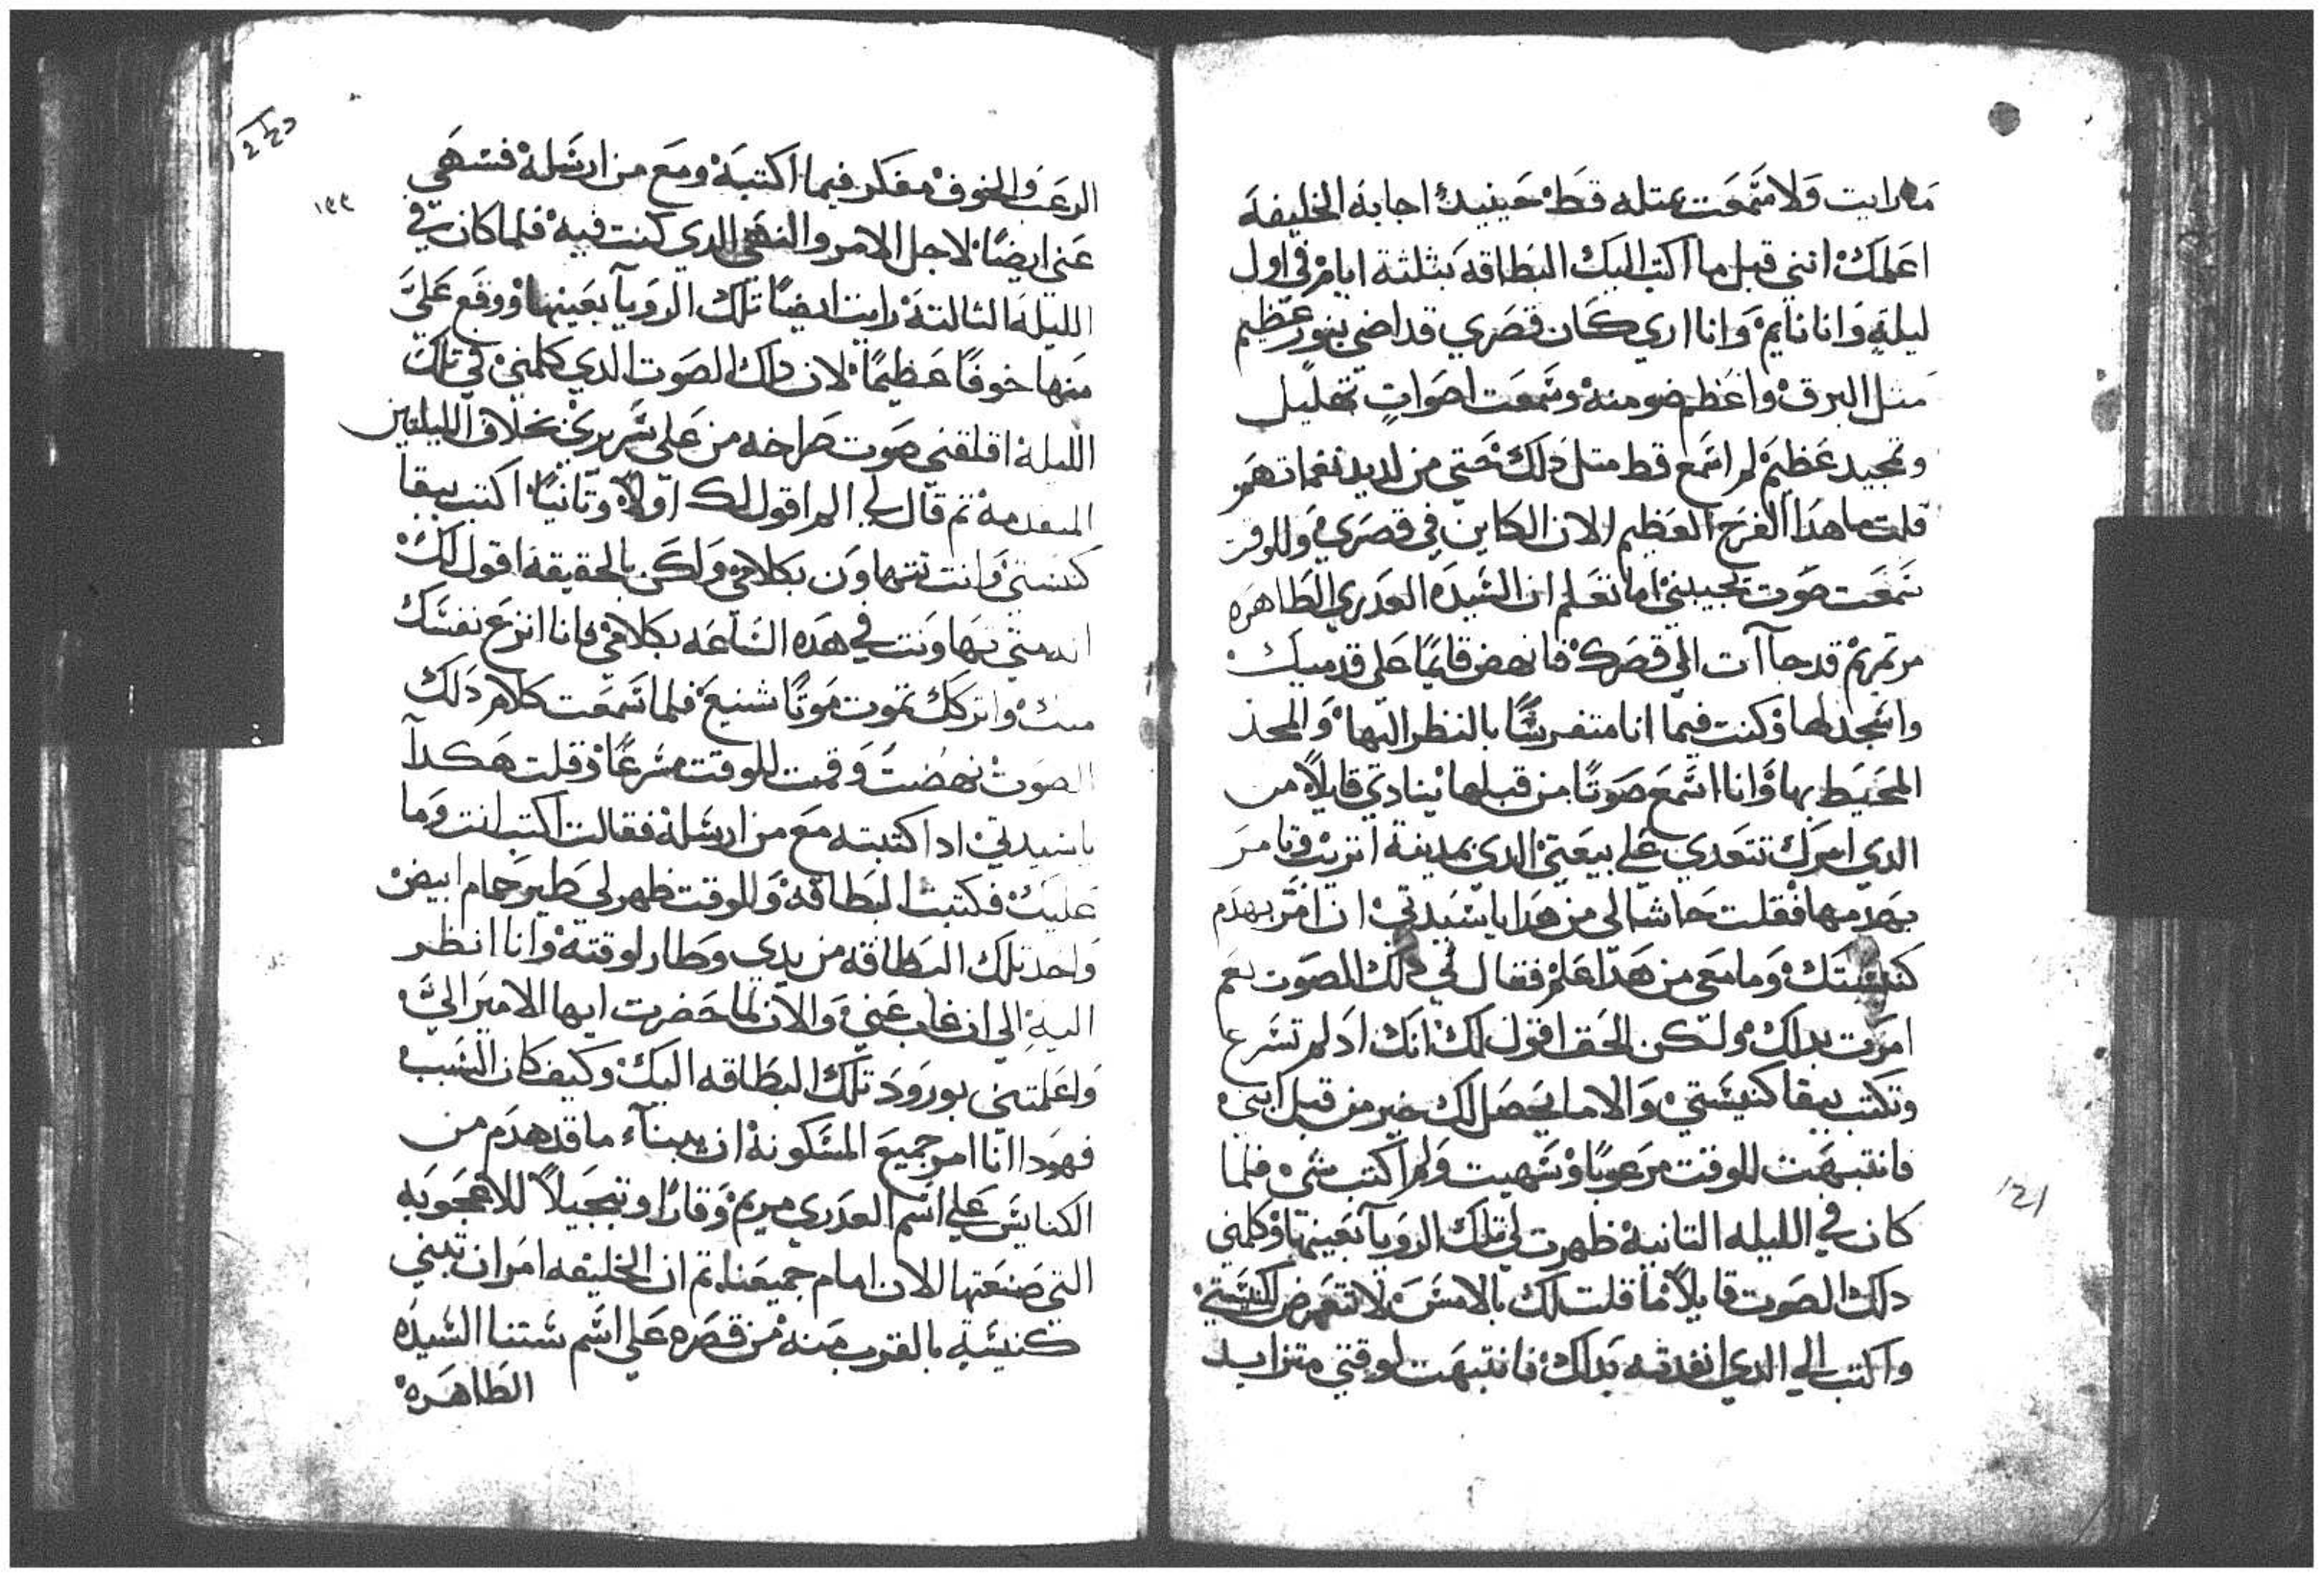 ما رايت ولا سمعت بمتله قط حينيدٍ اجابه الخليفه
اعلمك انني قبل ما اكتب اليك البطاقه بثلثة ايام في اول
ليلةٍ وانا نايم وانا اري كان قصري قد اضي بنور عظيم
متل البرق واعظم ضو منه وسمعت اصواتٍ تهليل
وتمجيد عظيم لم اسمع قط متل دلك حتي من لديد نغماتهم
قلت ما هدا الفرح العظيم الان الكاين في قصري وللوقت
سمعت صوت يجيبني اما تعلم ان السيده العدري الطاهره
مرتمريم قد جاآت الي قصرك فانهض قايمًا علي قدميك
واسجد لها وكنت فيما انا متفرسًا بالنظر اليها والمجد
المحيط بها وانا اسمع صوتًا من قبلها ينادي قايلاً من
الدي امرك تتعدي علي بيعتي الدي بمدينة اتريب وتامر
بهدمها فقلت حاشا لي من هدا يا سيدتي ان امر بهدم
كنيستك وما معي من هدا علم فقال لي دلك الصوت نعم
امرت بداك ولكن الحق اقول لك انك اد لم تسرع
وتكتب ببقا كنيستي والا ما يحصل لك خير من قبل ابني
فانتبهت للوقت مرعوبًا وسهيت ولم اكتب شي فلما
كان في الليله التانية ظهرت لي تلك الرويآ بعينها وكلمني
دلك الصوت قايلاً ما قلت لك بالامس لا تتعرض لكنيستي
واكتب الي الدي انفدته بداك فانتبهت لوقتي متزايد
١٤١
الرعب والخوف مفكر فيما اكتبة ومع من ارسلة فسهي
عني ايضًا لاجل الامر والنهي الدي كنت فيه فلما كان في
الليلة التالتة رايت ايضًا تلك الرويآ بعينها ووقع عليَّ
منها خوفًا عظيمًا لان دلك الصوت الدي كلمني في تلك
الليلة اقلقني صوت صراخه من علي سريري بخلاف الليلتين
المتقدمة تم قال لي الم اقول لك اولاً وتانيًا اكتب ببقا
كنيستي وانت تتهاون بكلامي ولكن بالحقيقة اقول لك
ان متي تهاونت في هده الساعه بكلامي فانا انزع نفسك
منك واتركك تموت موتًا شنيع فلما سمعت كلام دلك
الصوت نهضت وقمت للوقت مسرعًا وقلت هكدا
يا سيدتي ادا كتبته مع من ارسله فقالت اكتب انت وما
عليك فكتبت البطاقة وللوقت ظهر لي طير حمام ابيض
واخد تلك البطاقه من يدي وطار لوقتة وانا انظر
اليهِ الي ان غاب عني والان لما حضرت ايها الامير اليَّ
واعلمتني بورود تلك البطاقه اليك وكيف كان السبب
فهودا انا امر جميع المسكونة ان يبنآء ما قد هدم من
الكنايس علي اسم العدري مريم وقارًا وتبجيلاً للاعجوبه
التي صنعتها الان امام جميعنا تم ان الخليفه امر ان تبني
كنيسةٍ بالقرب منه من قصره علي اسم ستنا السيده
الطاهرة
١٤٢